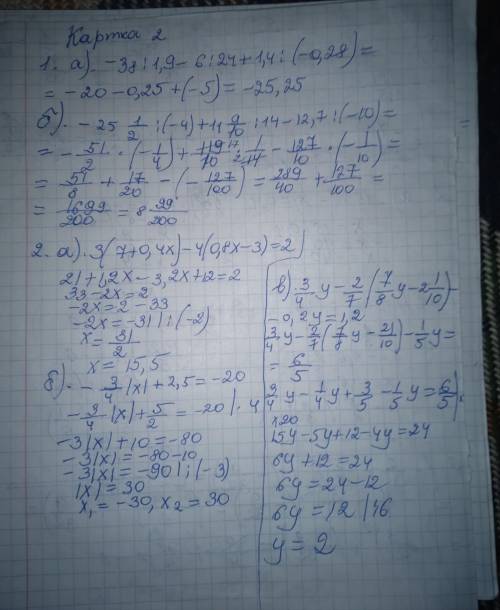 Картка 2
1. а). -38:1,9 - 6:24 + 1,4:(-0,28) =
= -20 - 0,25 + (-5) = -25,25
б). -25 1/2 :(-4) + 11 9/10 :14 - 12,7:(-10) =
= -51/2 · (-1/4) + 119/10 · 1/14 - 127/10 · (-1/10) =
= 51/8 + 17/20 - (-127/100) = 289/40 + 127/100 =
= 1699/200 = 8 99/200
2. а). 3(7+0,4x)-4(0,8x-3)=2
21+1,2x-3,2x+12=2
33-2x=2
-2x=2-33
-2x=-31|:(-2)
x=31/2
x=15,5
б). -3/4|x|+2,5=-20
-3/4|x|+5/2=-20|·4
-3|x|+10=-80
-3|x|=-80-10
-3|x|=-90|:(-3)
|x|=30
x₁=-30, x₂=30
в). 3/4 y - 2/7(7/8 y - 2 1/10) -
-0,2y=1,2
3/4 y - 2/7(7/8 y - 21/10) - 1/5 y =
= 6/5
3/4 y - 1/4 y + 3/5 - 1/5 y = 6/5 |·
x20
15y-5y+12-4y=24
6y+12=24
6y=24-12
6y=12 |:6
y=2